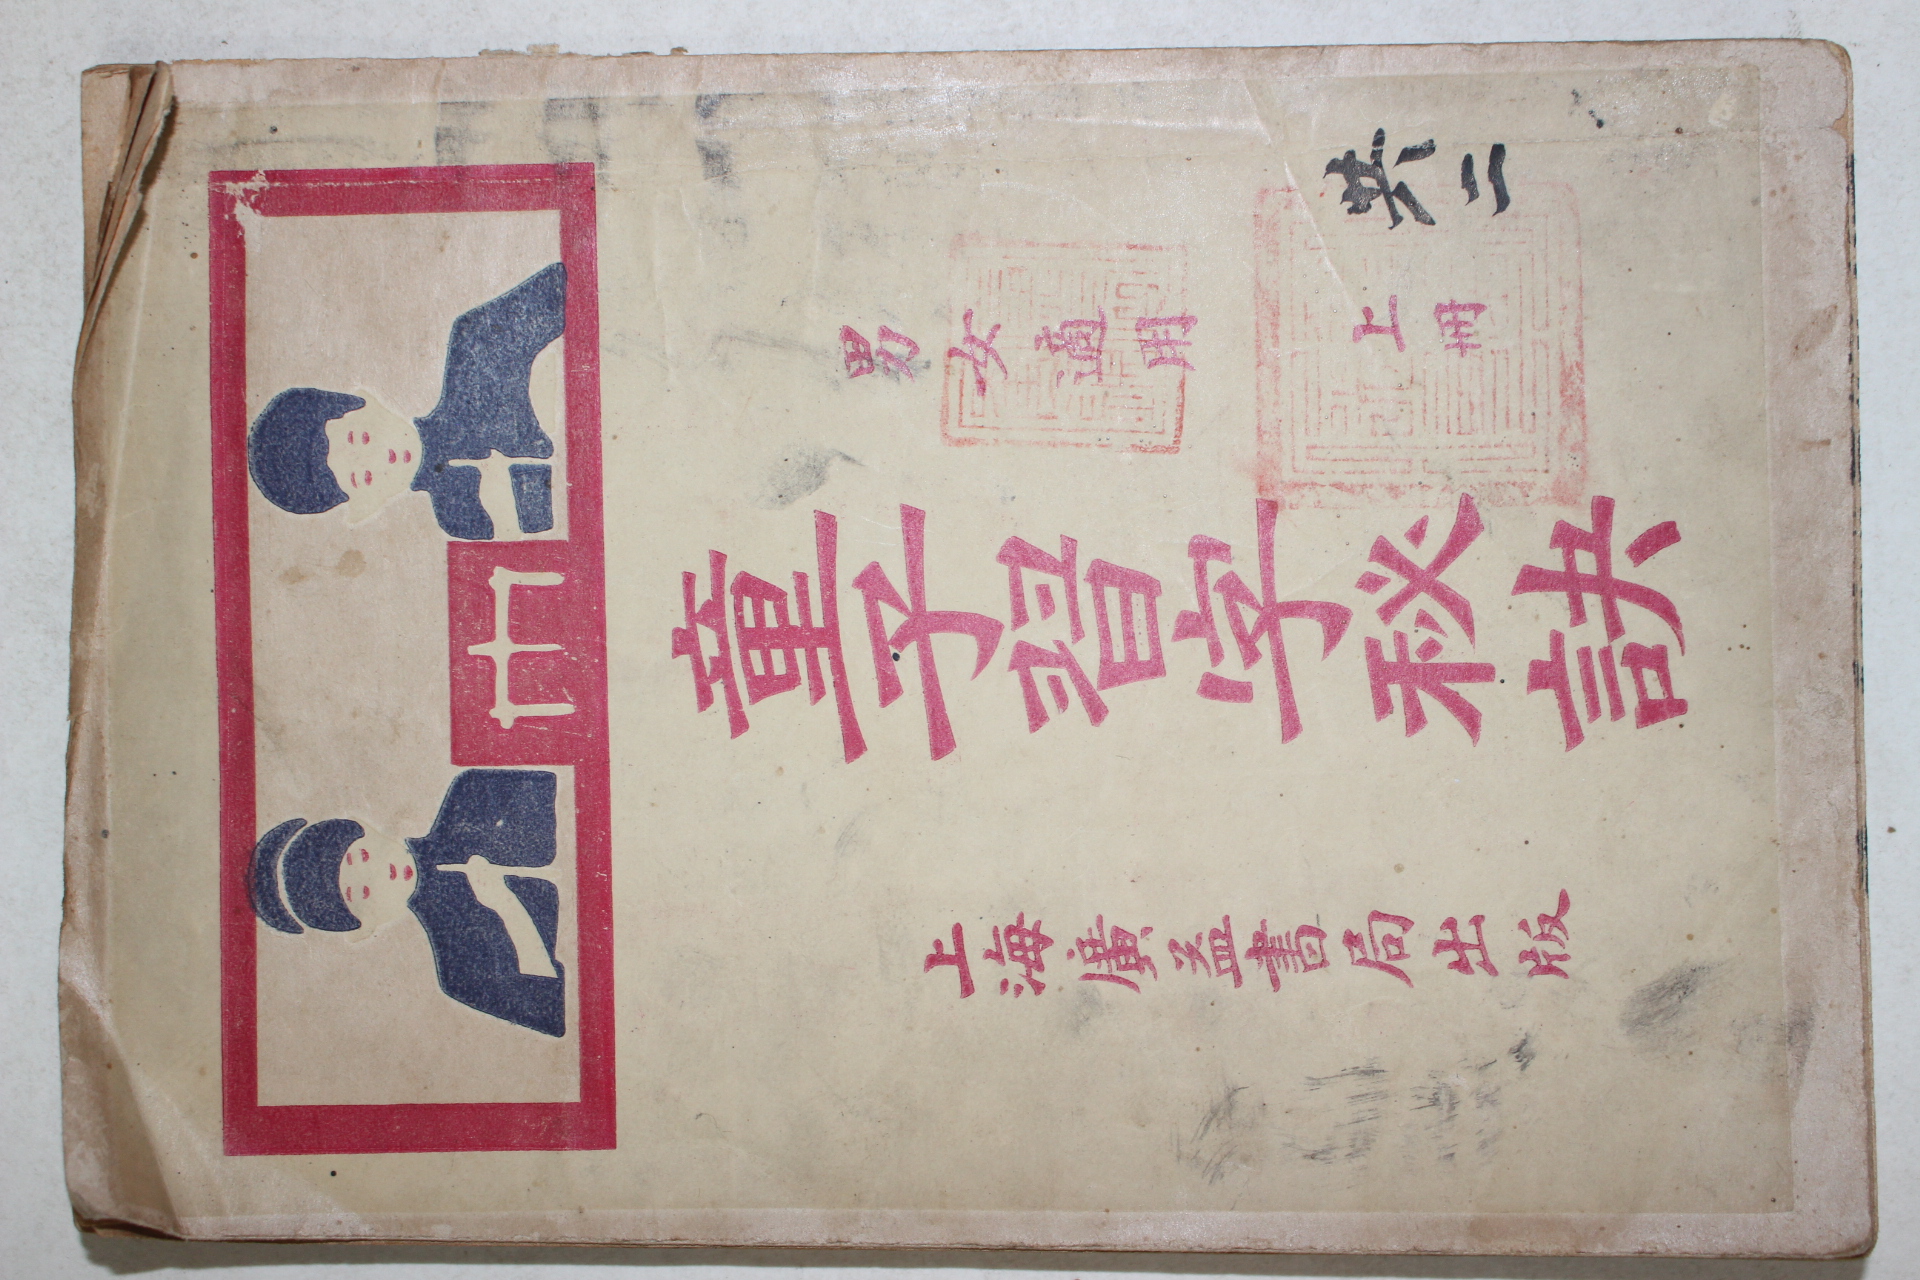 男女適用
上冊
共二
童子習字秘訣
上海廣益書局出版